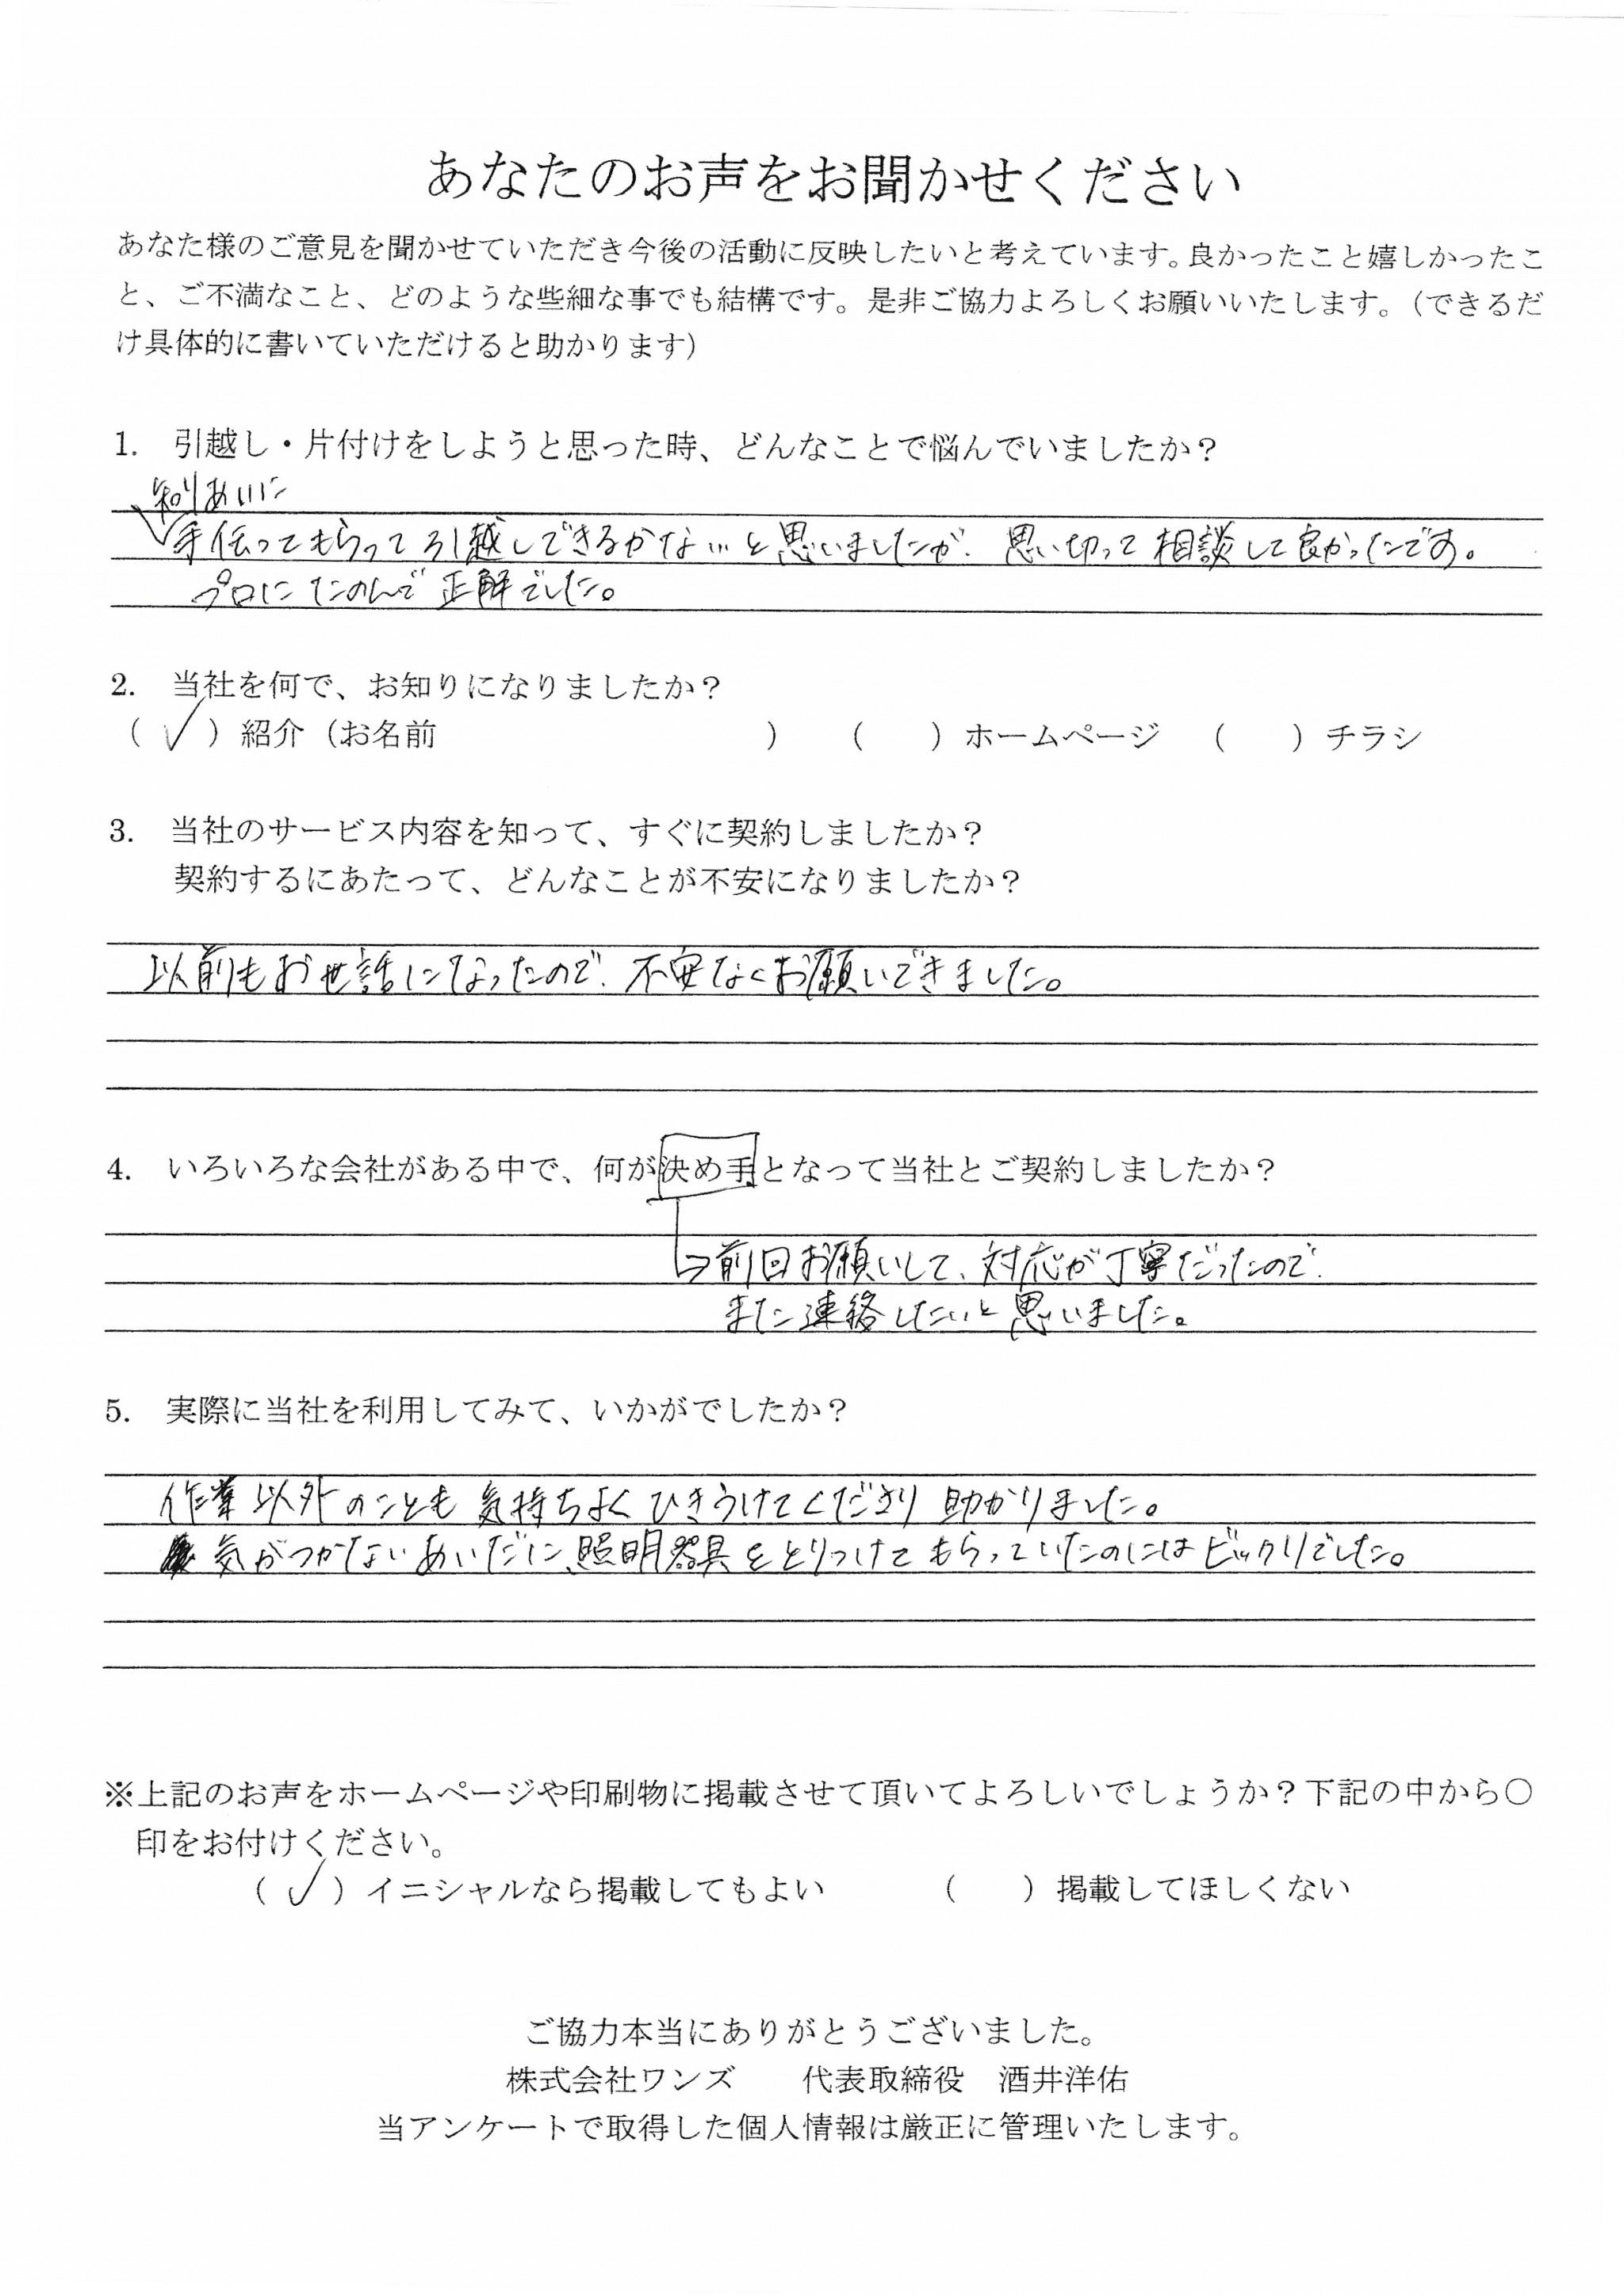 あなたのお声をお聞かせください
あなた様のご意見を聞かせていただき今後の活動に反映したいと考えています。良かったこと嬉しかったこ
と、ご不満なこと、どのような些細な事でも結構です。是非ご協力よろしくお願いいたします。（できるだ
け具体的に書いていただけると助かります）
1. 引越し・片付けをしようと思った時、どんなことで悩んでいましたか？
知りあいに
手伝ってもらって引越しできるかな…と思いましたが、思い切って相談して良かったです。
プロにたのんで正解でした。
2. 当社を何で、お知りになりましたか？
（ ✓ ）紹介（お名前 ） （ ）ホームページ （ ）チラシ
3. 当社のサービス内容を知って、すぐに契約しましたか？
契約するにあたって、どんなことが不安になりましたか？
以前もお世話になったので、不安なくお願いできました。
4. いろいろな会社がある中で、何が決め手となって当社とご契約しましたか？
→前回お願いして、対応が丁寧だったので、
また連絡したいと思いました。
5. 実際に当社を利用してみて、いかがでしたか？
作業以外のことも気持ちよくひきうけてくださり助かりました。
気がつかないあいだに、照明器具をとりつけてもらっていたのにはビックリでした。
※上記のお声をホームページや印刷物に掲載させて頂いてよろしいでしょうか？下記の中から○
印をお付けください。
（ ✓ ）イニシャルなら掲載してもよい （ ）掲載してほしくない
ご協力本当にありがとうございました。
株式会社ワンズ 代表取締役 酒井洋佑
当アンケートで取得した個人情報は厳正に管理いたします。